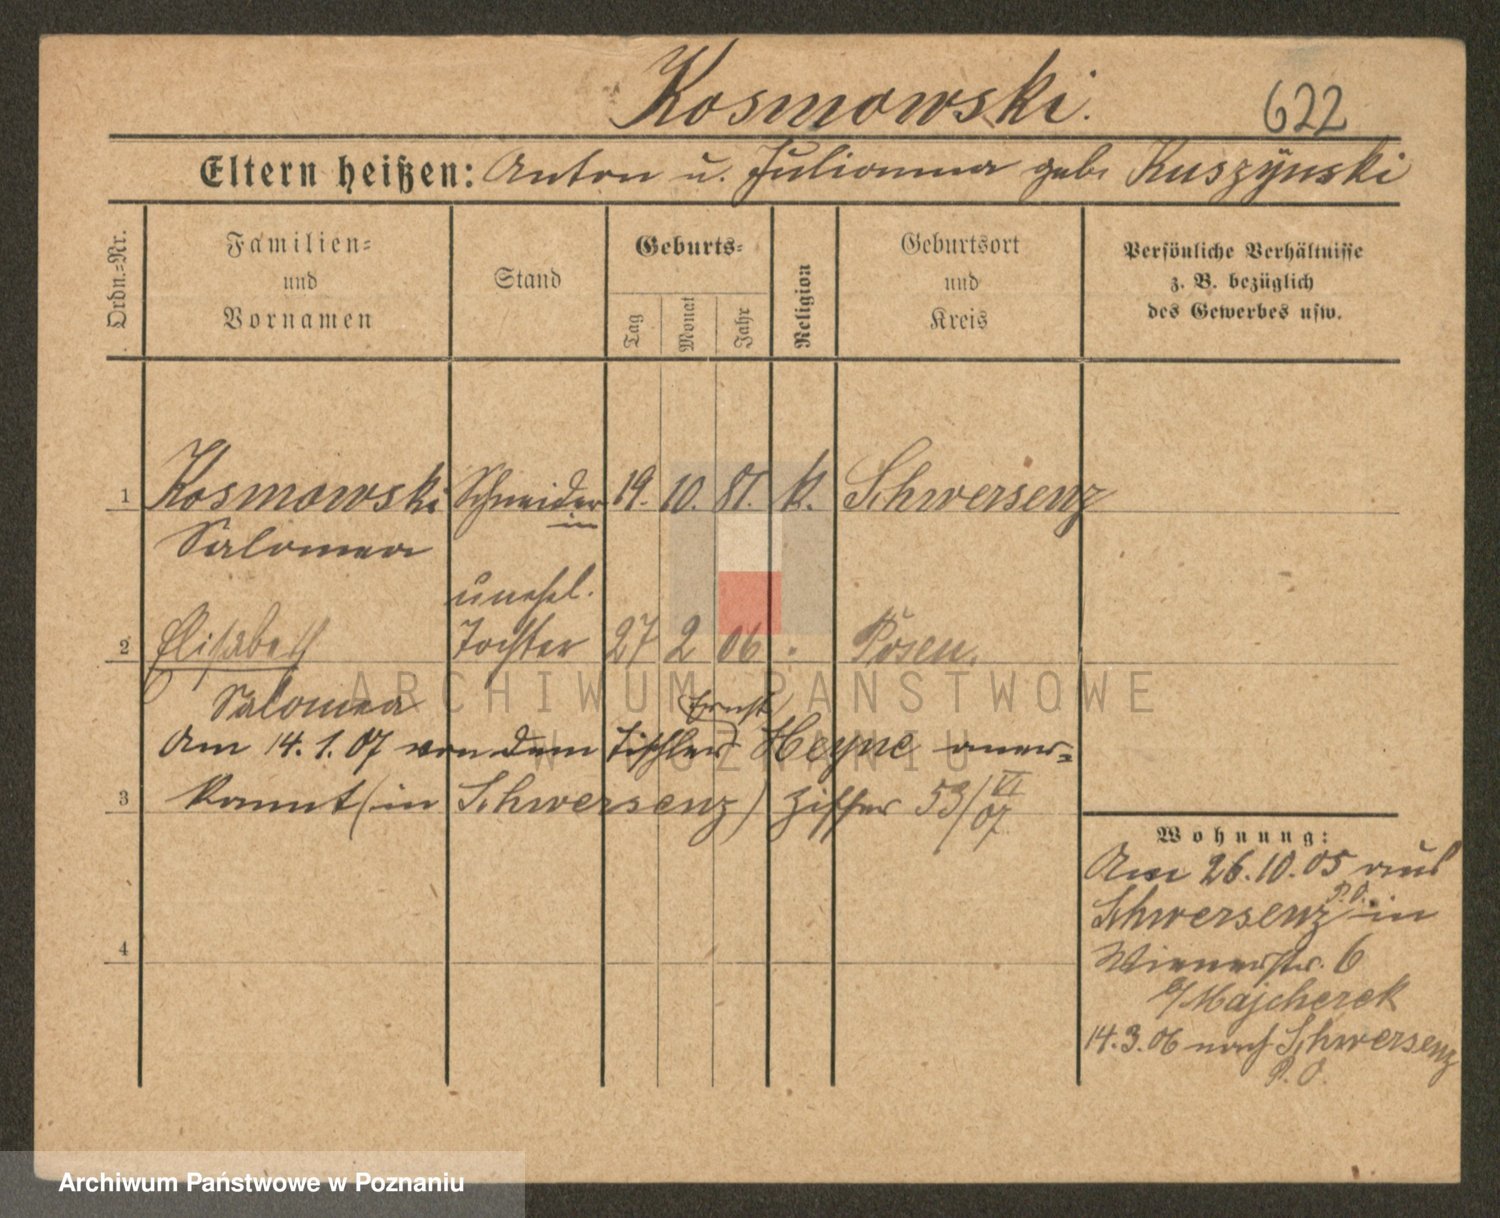 Kosmowski.
622
Eltern heißen: Anton u. Julianna geb. Kuszÿnski
Ordn.=Nr.
Familien=
und
Vornamen
Stand
Geburts=
Tag
Monat
Jahr
Religion
Geburtsort
und
Kreis
Persönliche Verhältnisse
z. B. bezüglich
des Gewerbes usw.
1 Kosmowski Schneider 19. 10. 81. k. Schwersenz
in
Salomea
unehl.
2 Elisabeth Tochter 27 2 06 Posen.
Salomea
Ernst
Am 14.1.07 von dem Tischler Heyne aner=
3 kannt (in Schwersenz) Ziffer 53/VI 07
4
Wohnung:
Am 26.10.05 aus
Schwersenz P.O. in
Wienerstr. 6
b/Majcherek
14.3.06 nach Schwersenz
P.O.
ARCHIWUM PAŃSTWOWE
W POZNANIU
Archiwum Państwowe w Poznaniu